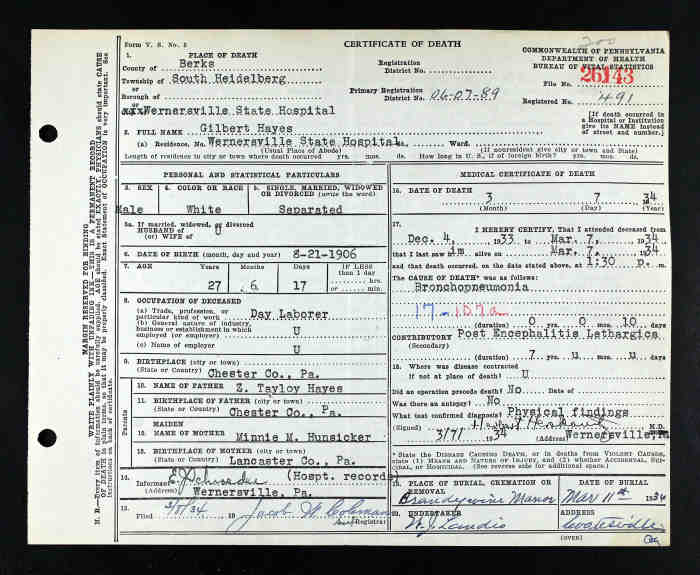 Form V. S. No. 5
CERTIFICATE OF DEATH
COMMONWEALTH OF PENNSYLVANIA
DEPARTMENT OF HEALTH
BUREAU OF VITAL STATISTICS
1. PLACE OF DEATH
County of Berks
Registration District No.
File No. 26143
Township of South Heidelberg
or
Borough of
Primary Registration District No. 06-07-89
Registered No. 491
or
XXX Wernersville State Hospital
[If death occurred in a Hospital or Institution give its NAME instead of street and number.]
2. FULL NAME Gilbert Hayes
(a) Residence, No. Wernersville State Hospital St., Ward.
(Usual Place of Abode) (If nonresident give city or town and State)
Length of residence in city or town where death occurred yrs. mos. ds. How long in U. S., if of foreign birth? yrs. mos. ds.
PERSONAL AND STATISTICAL PARTICULARS
3. SEX Male
4. COLOR OR RACE White
5. SINGLE, MARRIED, WIDOWED OR DIVORCED (write the word) Separated
5a. If married, widowed, or divorced
HUSBAND of U
(or) WIFE of
6. DATE OF BIRTH (month, day and year) 8-21-1906
7. AGE 27 Months 6 Days 17
IF LESS than 1 day, hrs. or min.
8. OCCUPATION OF DECEASED
(a) Trade, profession, or particular kind of work Day Laborer
(b) General nature of industry, business or establishment in which employed (or employer) U
(c) Name of employer U
9. BIRTHPLACE (city or town)
(State or Country) Chester Co., Pa.
Parents
10. NAME OF FATHER Z. Tayloy Hayes
11. BIRTHPLACE OF FATHER (city or town)
(State or Country) Chester Co., Pa.
12. MAIDEN NAME OF MOTHER Minnie M. Hunsicker
13. BIRTHPLACE OF MOTHER (city or town)
(State or Country) Lancaster Co., Pa.
14. Informant (Hospt. records)
(Address) Wernersville, Pa.
15. Filed 3/8/34 19 Jacob W. Coleman
Registrar
MEDICAL CERTIFICATE OF DEATH
16. DATE OF DEATH 3 7 1934
(Month) (Day) (Year)
17. I HEREBY CERTIFY, That I attended deceased from
Dec. 4, 1933 to Mar. 7, 1934
that I last saw him alive on Mar. 7, 1934
and that death occurred, on the date stated above, at 1:30 p. m.
The CAUSE OF DEATH* was as follows:
Bronchopneumonia
17-107a
(duration) 0 yrs. 0 mos. 10 days
CONTRIBUTORY Post Encephalitis Lethargica
(Secondary)
(duration) 7 yrs. U mos. U days
18. Where was disease contracted
if not at place of death? U
Did an operation precede death? No Date of
Was there an autopsy? No
What test confirmed diagnosis? Physical findings
(Signed) M.D.
3/7/ 1934 (Address) Wernersville, Pa.
* State the DISEASE CAUSING DEATH, or in deaths from VIOLENT CAUSES, state (1) MEANS AND NATURE OF INJURY, and (2) whether ACCIDENTAL, SUICIDAL, or HOMICIDAL. (See reverse side for additional space.)
19. PLACE OF BURIAL, CREMATION OR REMOVAL Brandywine Manor
DATE OF BURIAL Mar 11th 1934
20. UNDERTAKER W. J. Landis
ADDRESS Coatesville
(OVER)
MARGIN RESERVED FOR BINDING
WRITE PLAINLY, WITH UNFADING INK—THIS IS A PERMANENT RECORD
N. B.—Every item of information should be carefully supplied. AGE should be stated EXACTLY. PHYSICIANS should state CAUSE OF DEATH in plain terms, so that it may be properly classified. Exact Statement of OCCUPATION is very important. See instructions on back of certificate.